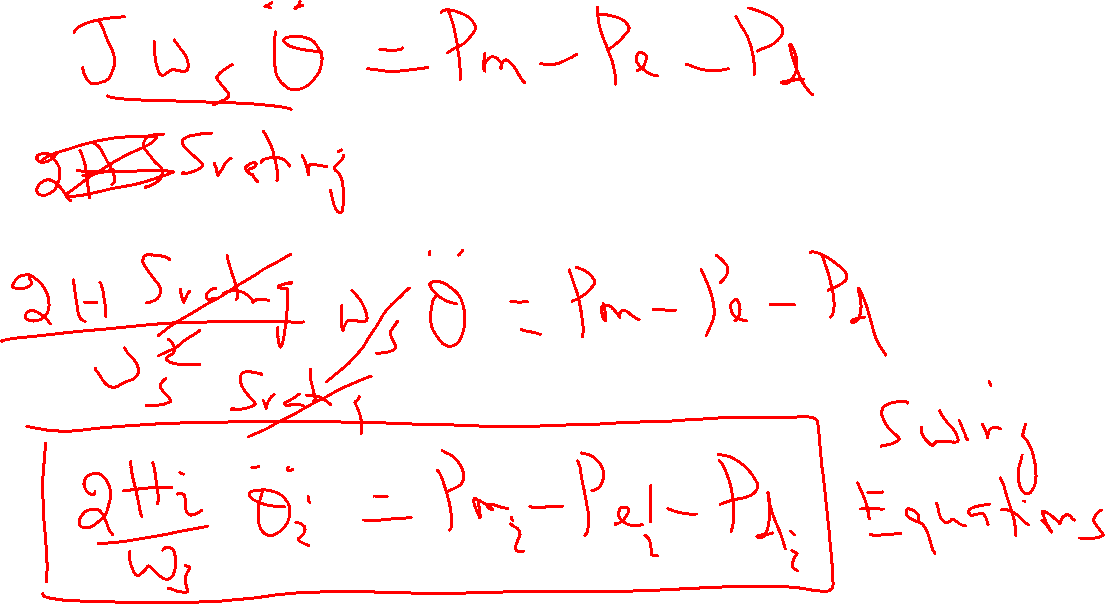 J ω_s θ̈ = Pm - Pe - Pd
2HS Srating
2H Srating / ω_s² Srating ω_s θ̈ = Pm - Pe - Pd
2H_i / ω_s θ̈_i = Pm_i - Pe_i - Pd_i
Swing
Equations